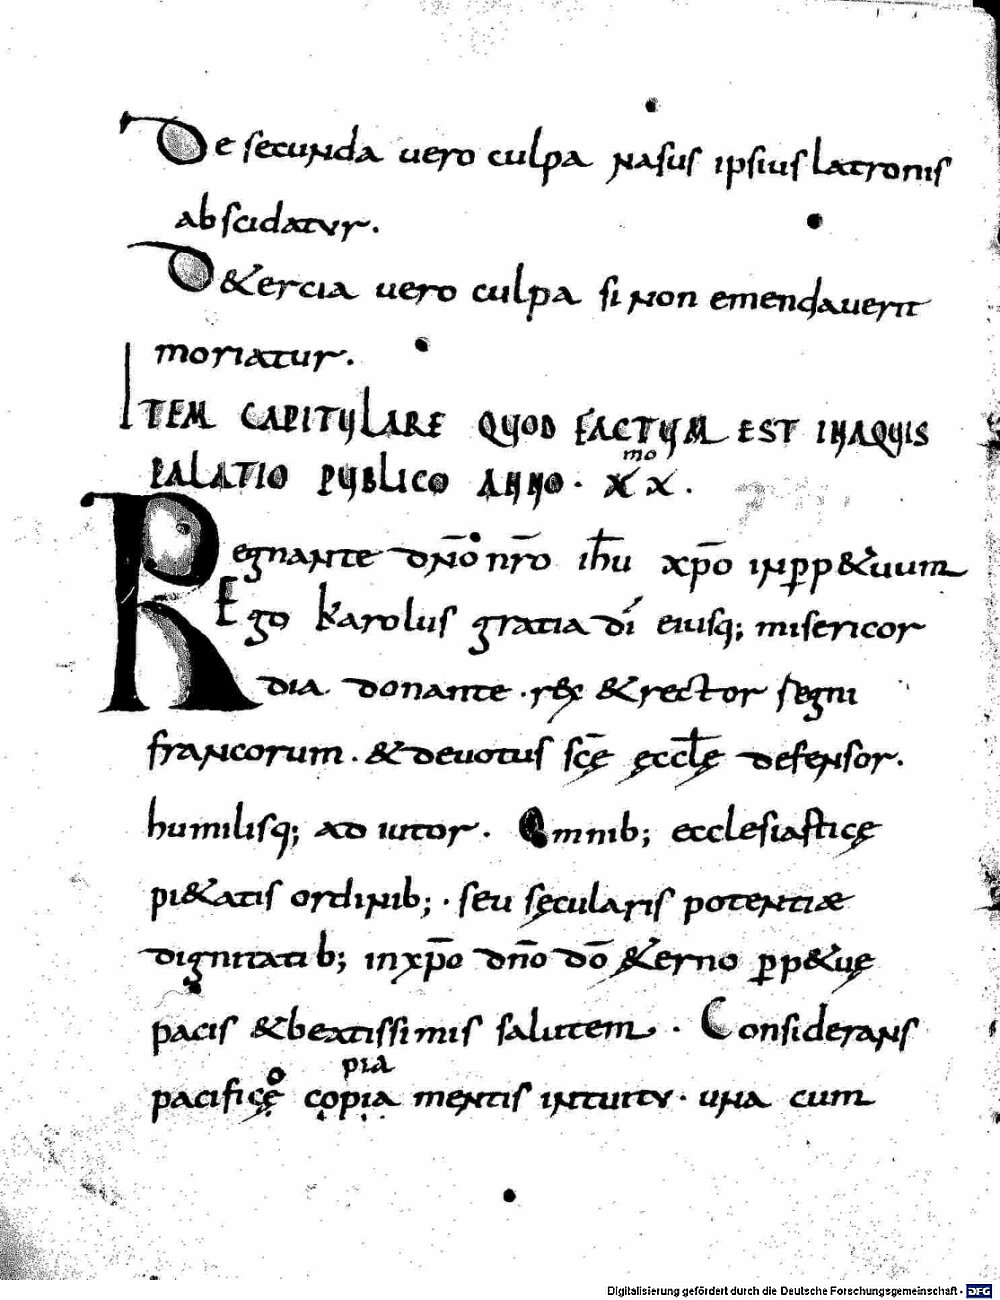 De secunda uero culpa nasus ipsius latronis
abscidatur.
D&ercia uero culpa si non emendauerit
moriatur.
ITEM CAPITULARE QUOD FACTUM EST INAQUIS
PALATIO PUBLICO ANNO · XXmo.
Regnante dn̄o nr̄o ih̄u xp̄o inꝑp&uum
Ego karolus gratia dī eiusq; misericor
dia donante · rex &rector regni
francorum · &deuotus sc̄ę ęccl̄ę defensor.
humilisq; adiutor. Omnib; ecclesiasticę
pi&atis ordinib; · seu sęcularis potentiæ
dignitatib; inxp̄o dn̄o dō &erno ꝑp&uę
pacis &beatissimis salutem · Considerans
pia
pacificę copia mentis intuitu · una cum
Digitalisierung gefördert durch die Deutsche Forschungsgemeinschaft - DFG